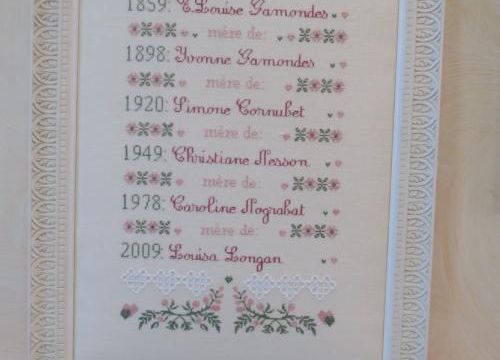 1859: C.Louise Gamondes
mère de:
1898: Yvonne Gamondes
mère de:
1920: Simone Cornubet
mère de:
1949: Christiane Nesson
mère de:
1978: Caroline Nograbat
mère de:
2009: Louisa Longan